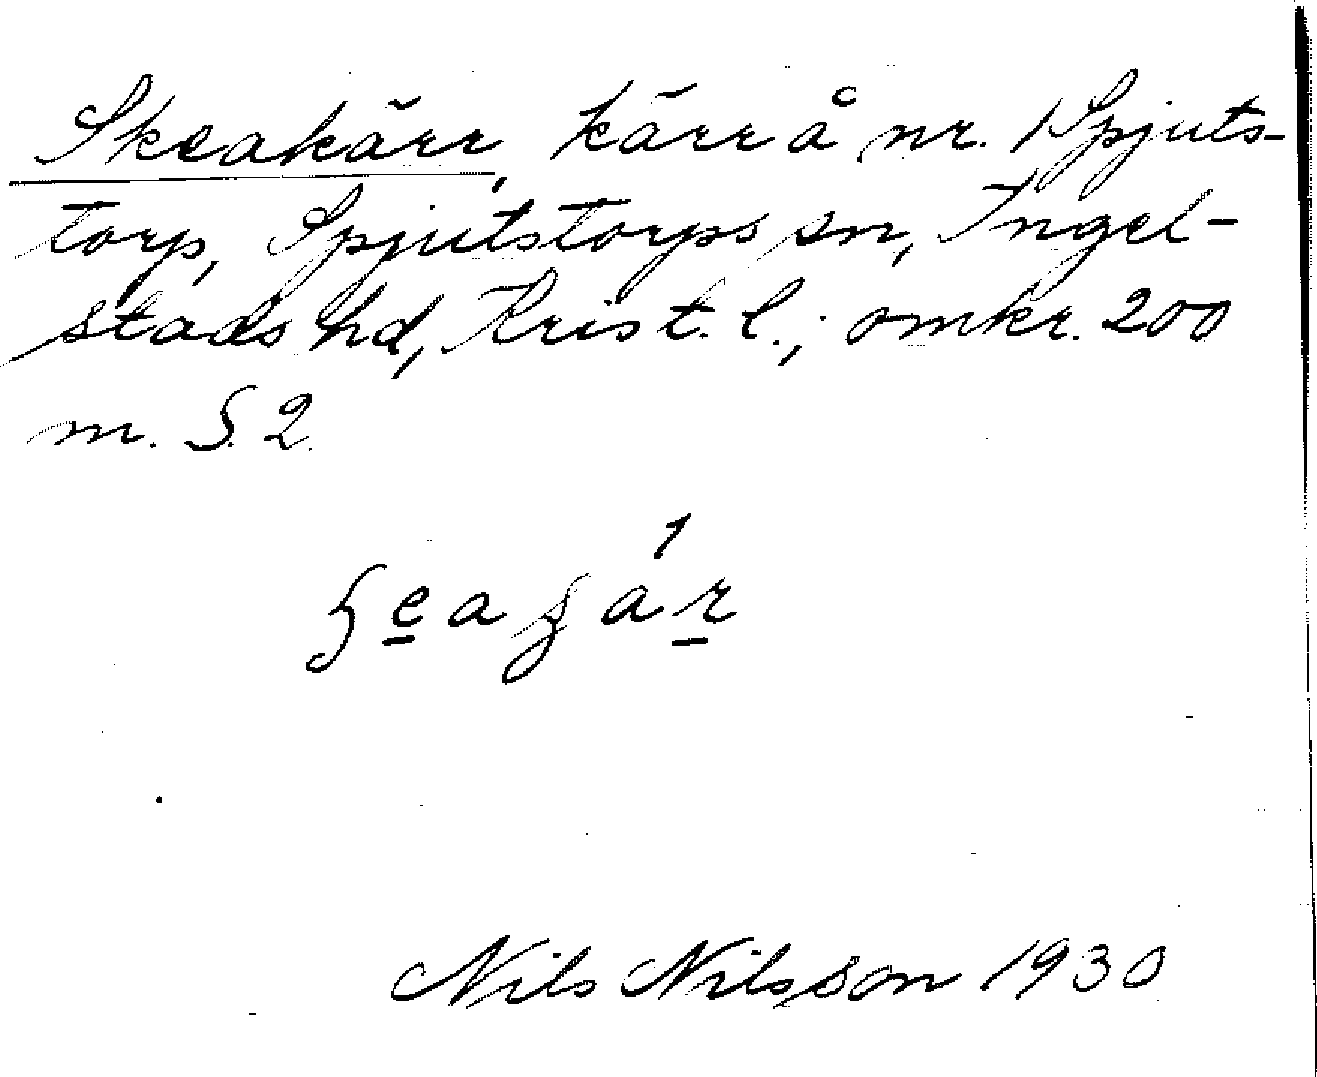 Skeakärr, kärr å nr. 1 Spjuts-
torp, Spjutstorps sn, Ingel-
stads hd, Krist. l.; omkr. 200
m. S. 2.
Nils Nilsson 1930